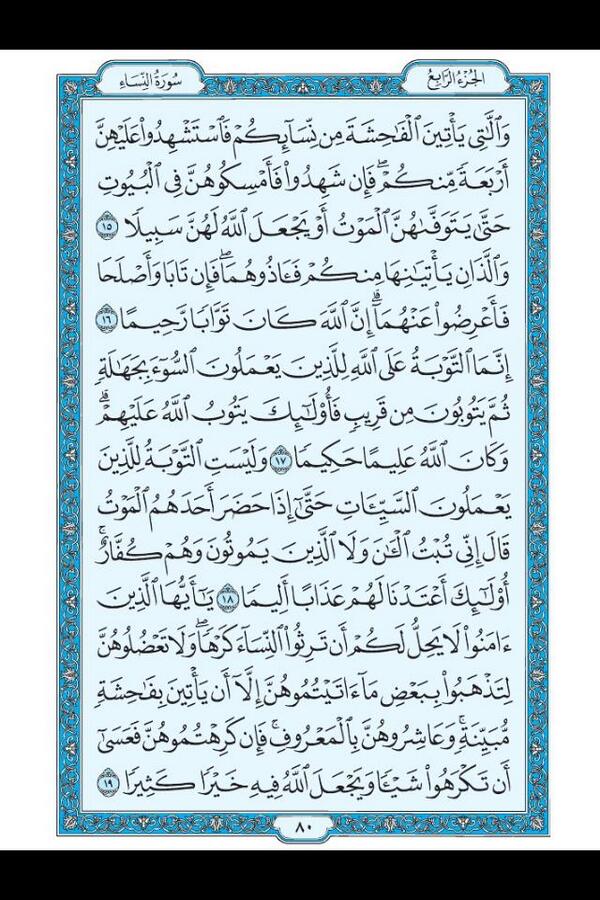 الجزء الرابع
سورة النساء
وَٱلَّٰتِى يَأۡتِينَ ٱلۡفَٰحِشَةَ مِن نِّسَآئِكُمۡ فَٱسۡتَشۡهِدُواْ عَلَيۡهِنَّ
أَرۡبَعَةٗ مِّنكُمۡۖ فَإِن شَهِدُواْ فَأَمۡسِكُوهُنَّ فِى ٱلۡبُيُوتِ
حَتَّىٰ يَتَوَفَّىٰهُنَّ ٱلۡمَوۡتُ أَوۡ يَجۡعَلَ ٱللَّهُ لَهُنَّ سَبِيلٗا ١٥
وَٱلَّذَانِ يَأۡتِيَٰنِهَا مِنكُمۡ فَـَٔاذُوهُمَاۖ فَإِن تَابَا وَأَصۡلَحَا
فَأَعۡرِضُواْ عَنۡهُمَآۗ إِنَّ ٱللَّهَ كَانَ تَوَّابٗا رَّحِيمًا ١٦
إِنَّمَا ٱلتَّوۡبَةُ عَلَى ٱللَّهِ لِلَّذِينَ يَعۡمَلُونَ ٱلسُّوٓءَ بِجَهَٰلَةٖ
ثُمَّ يَتُوبُونَ مِن قَرِيبٖ فَأُوْلَٰٓئِكَ يَتُوبُ ٱللَّهُ عَلَيۡهِمۡۗ
وَكَانَ ٱللَّهُ عَلِيمًا حَكِيمٗا ١٧ وَلَيۡسَتِ ٱلتَّوۡبَةُ لِلَّذِينَ
يَعۡمَلُونَ ٱلسَّيِّـَٔاتِ حَتَّىٰٓ إِذَا حَضَرَ أَحَدَهُمُ ٱلۡمَوۡتُ
قَالَ إِنِّى تُبۡتُ ٱلۡـَٰٔنَ وَلَا ٱلَّذِينَ يَمُوتُونَ وَهُمۡ كُفَّارٌۚ
أُوْلَٰٓئِكَ أَعۡتَدۡنَا لَهُمۡ عَذَابًا أَلِيمٗا ١٨ يَٰٓأَيُّهَا ٱلَّذِينَ
ءَامَنُواْ لَا يَحِلُّ لَكُمۡ أَن تَرِثُواْ ٱلنِّسَآءَ كَرۡهٗاۖ وَلَا تَعۡضُلُوهُنَّ
لِتَذۡهَبُواْ بِبَعۡضِ مَآ ءَاتَيۡتُمُوهُنَّ إِلَّآ أَن يَأۡتِينَ بِفَٰحِشَةٖ
مُّبَيِّنَةٖۚ وَعَاشِرُوهُنَّ بِٱلۡمَعۡرُوفِۚ فَإِن كَرِهۡتُمُوهُنَّ فَعَسَىٰٓ
أَن تَكۡرَهُواْ شَيۡـٔٗا وَيَجۡعَلَ ٱللَّهُ فِيهِ خَيۡرٗا كَثِيرٗا ١٩
٨٠